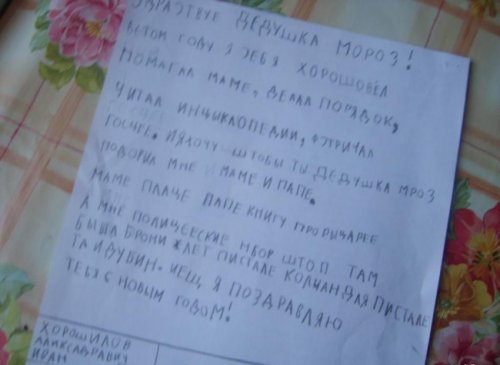 ЗДРАСТВУЕ ДЕДУШКА МОРОЗ!
ВЕТОМ ГОДУ Я ЗЕБЯ ХОРОШОВЁЛ
ПОМАГАЛ МАМЕ, ДЕЛАЛ ПОРЯДОК,
ЧИТАЛ ИНЦЫКЛОПЕДИИ,
ИЯХОЧУ ШТОБЫ ТЫ ДЕДУШКА МРОЗ
ПОДОРИЛ МНЕ И МАМЕ И ПАПЕ.
МАМЕ ПЛАЦЕ ПАПЕ КНИГУ ПРОРЫЦАРЕЕ
А МНЕ ПОЛИЦЕЕСКИЕ НБОР ШТО П ТАМ
БЫЛА БРОНИ ЖЛЕТ ПИСТАЛЕ КОЛЧАН ДЛЯ ПИСТАЛЕ
ТА И ДУБИН. ИЕЩ Я ПОЗДРАВЛЯЮ
ТЕБЯ С НОВЫМ ГОДОМ!
ХОРОШИЛОВ
АЛИКСАДРАВИЧ
ИВАН